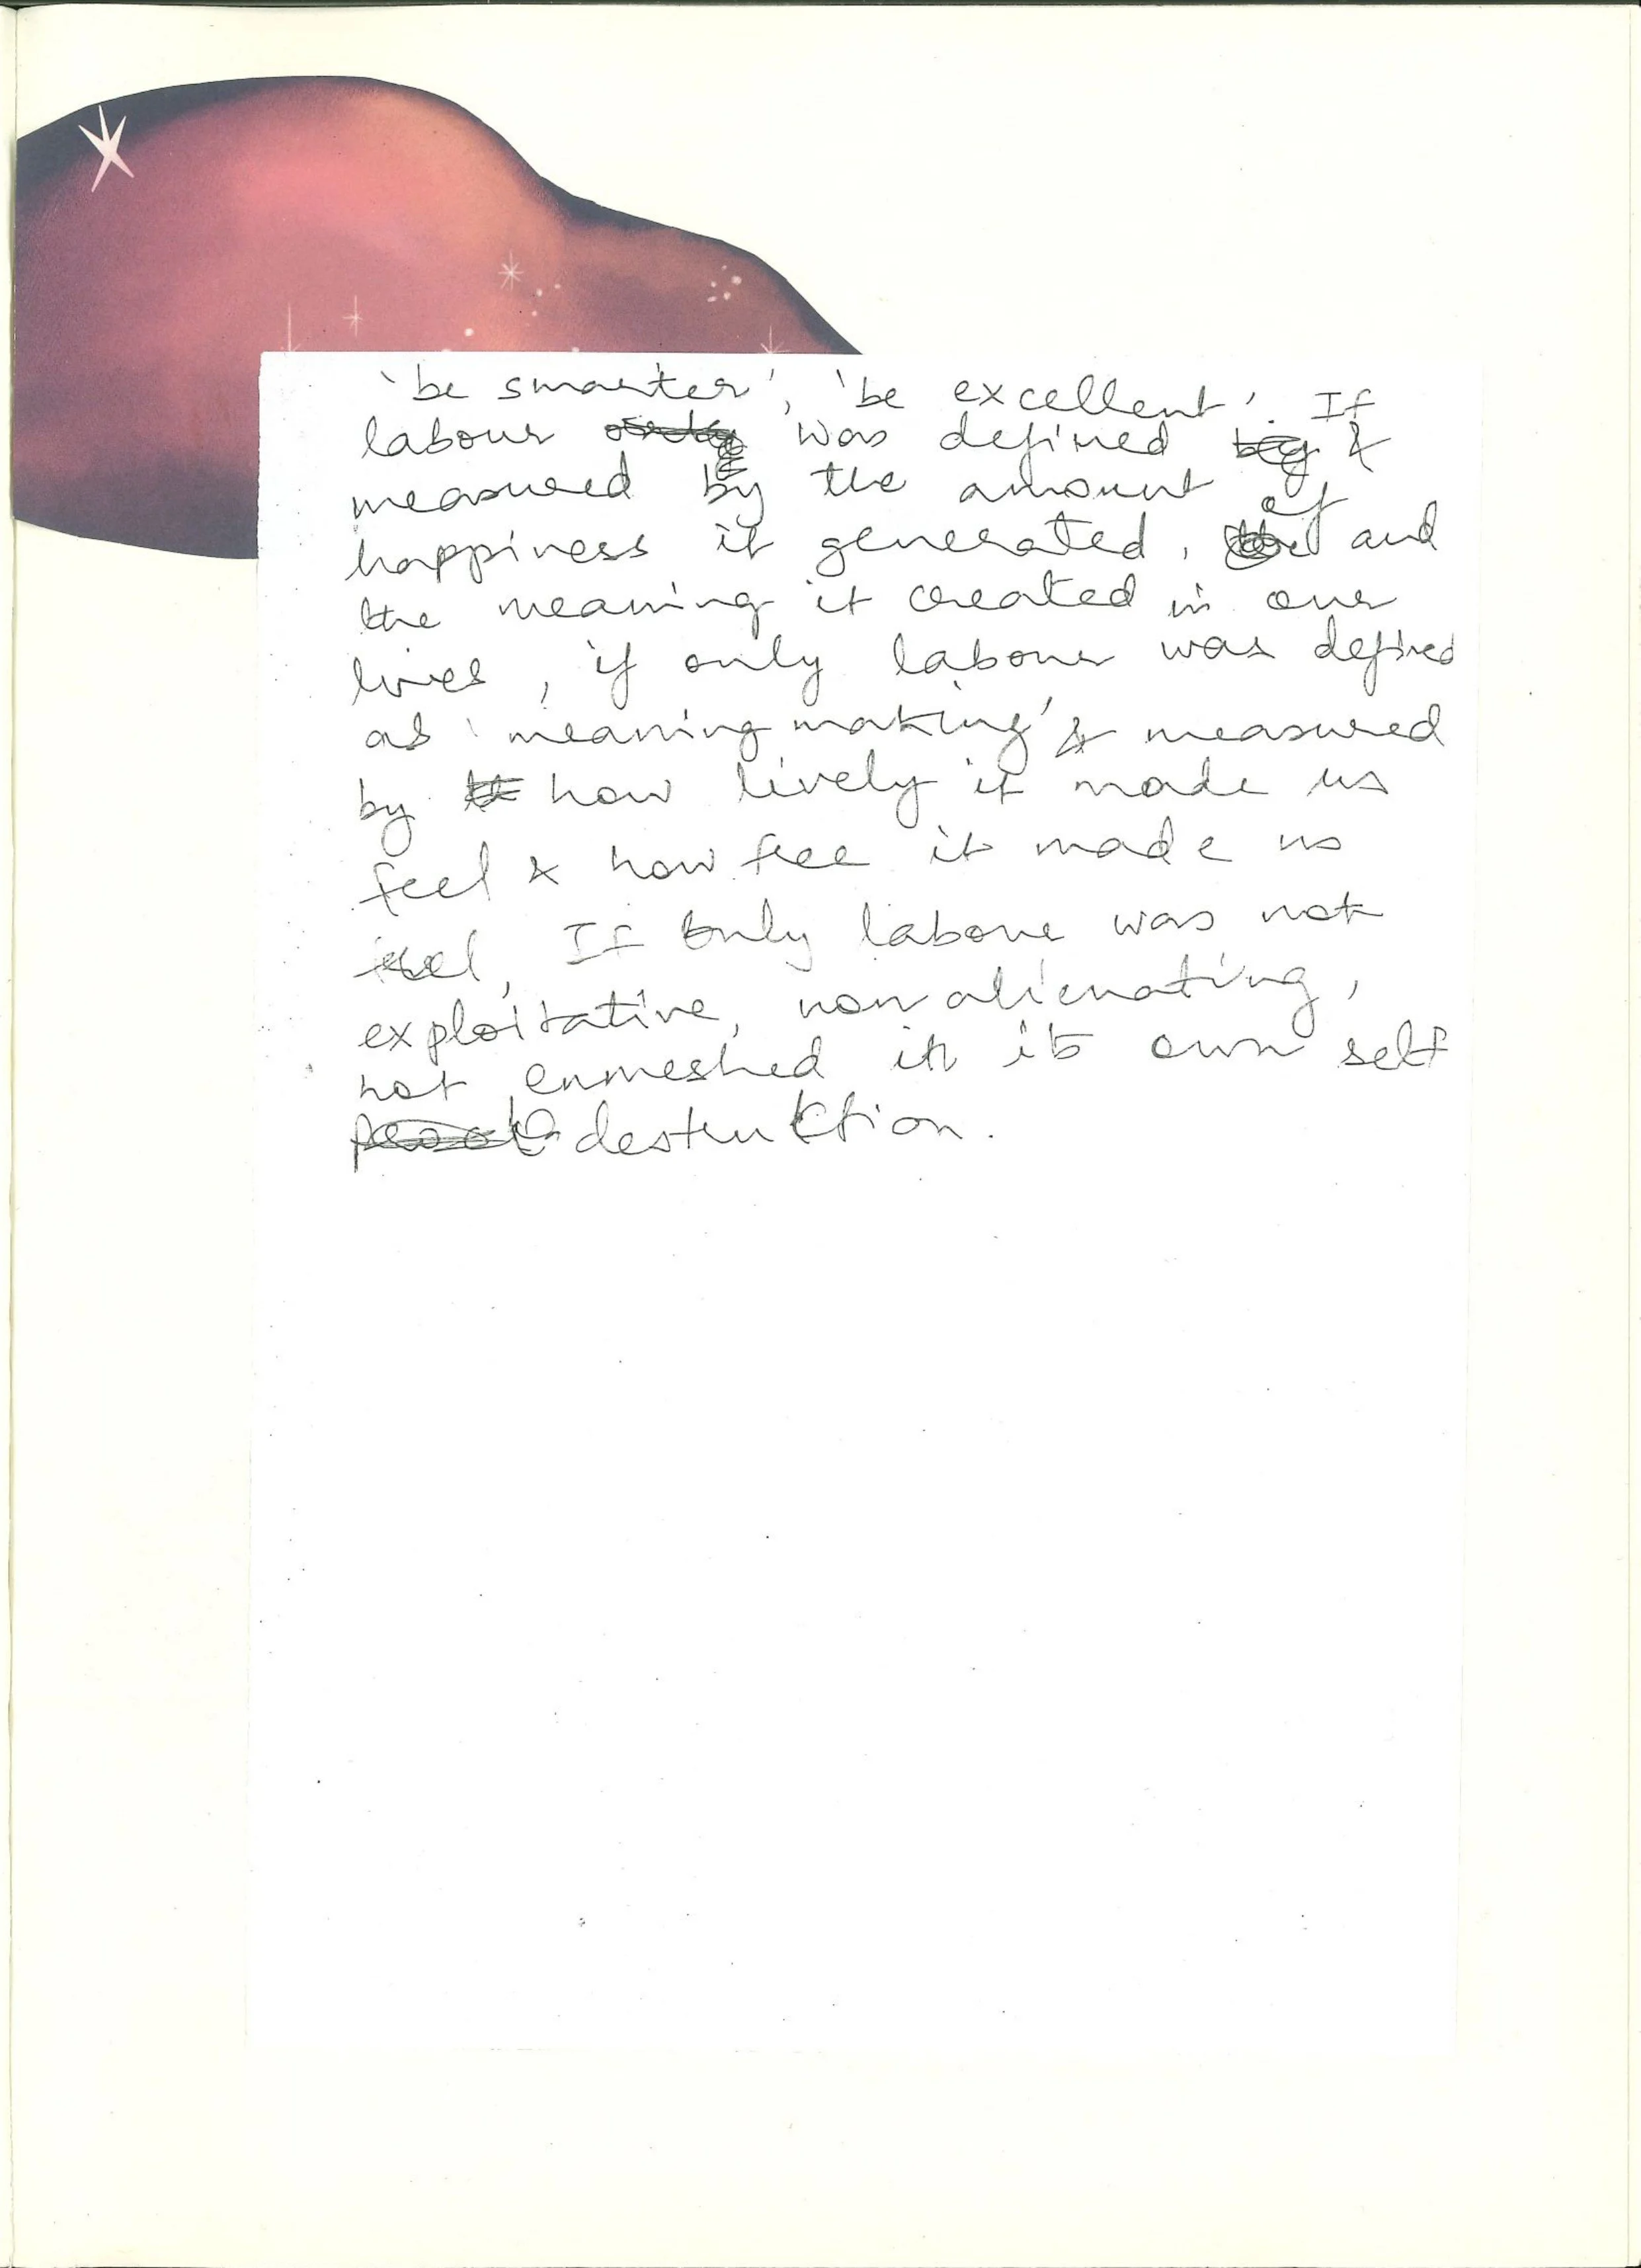 'be smarter', 'be excellent'. If
labour was defined &
measured by the amount of
happiness it generated, and
the meaning it created in our
lives, if only labour was defined
as 'meaning making' & measured
by how lively it made us
feel & how free it made us
feel, If only labour was not
exploitative, non alienating,
not enmeshed in its own self
destruktion.